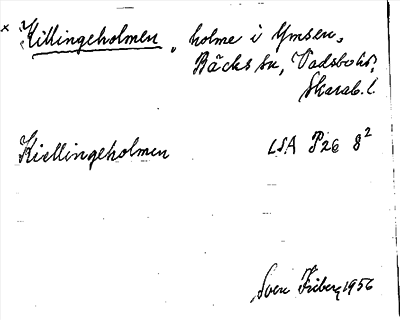 x Killingeholmen, holme i Ymsen,
Bäcks sn, Vadsbo hd,
Skarab. l.
Kiellingeholmen LSA P26 8²
Sven Friberg 1956